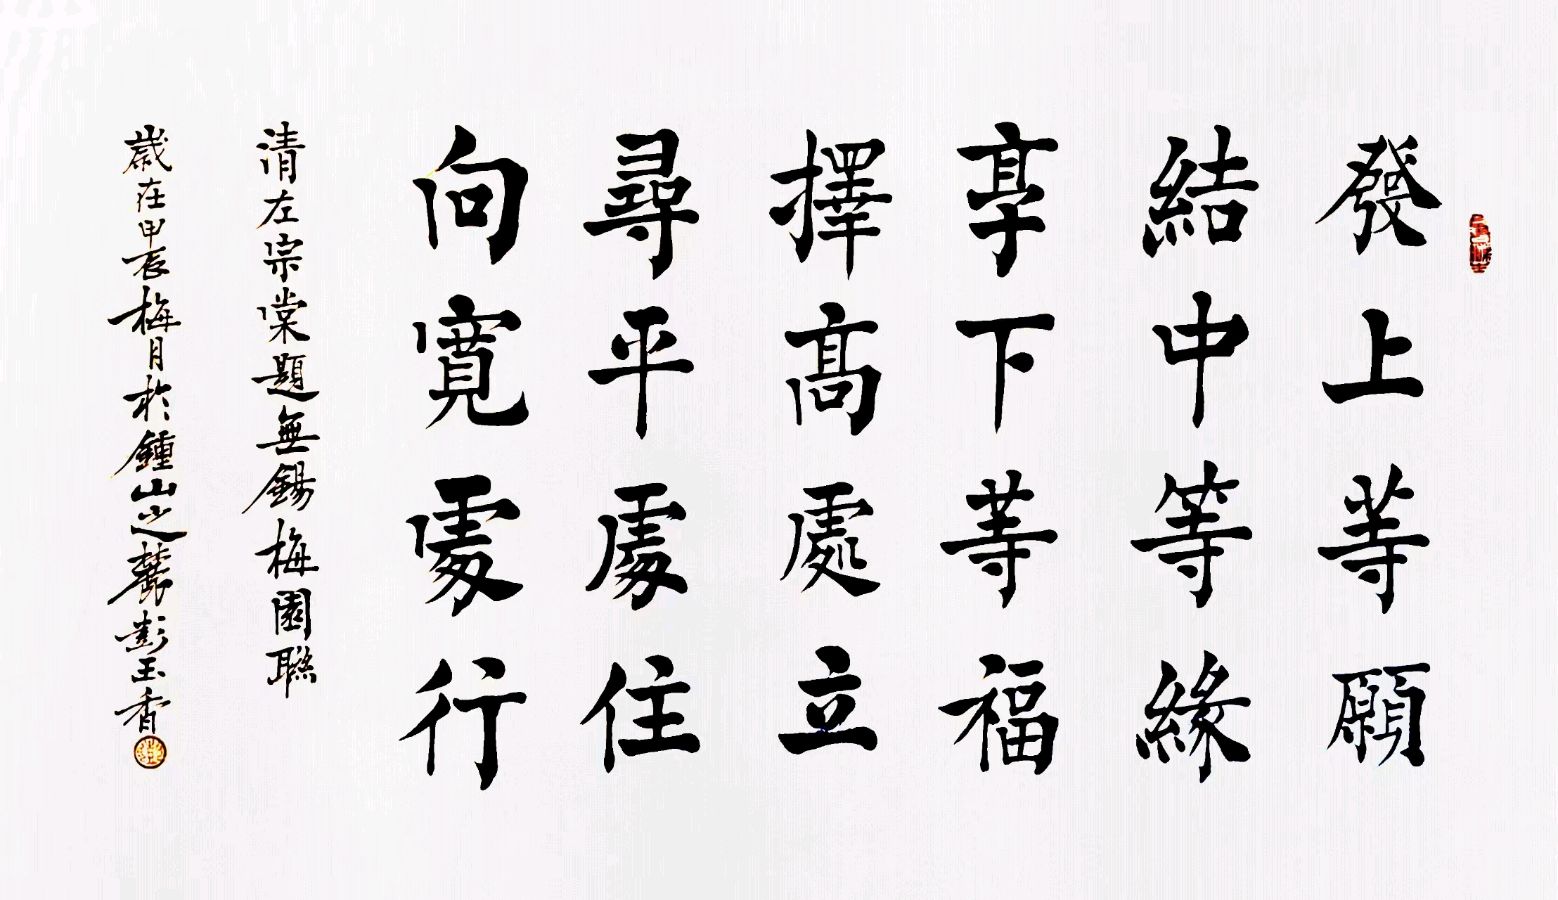 發上等願
結中等緣
享下等福
擇高處立
尋平處住
向寬處行
清左宗棠題無錫梅園聯
歲在甲辰梅月於鍾山之麓彭玉香